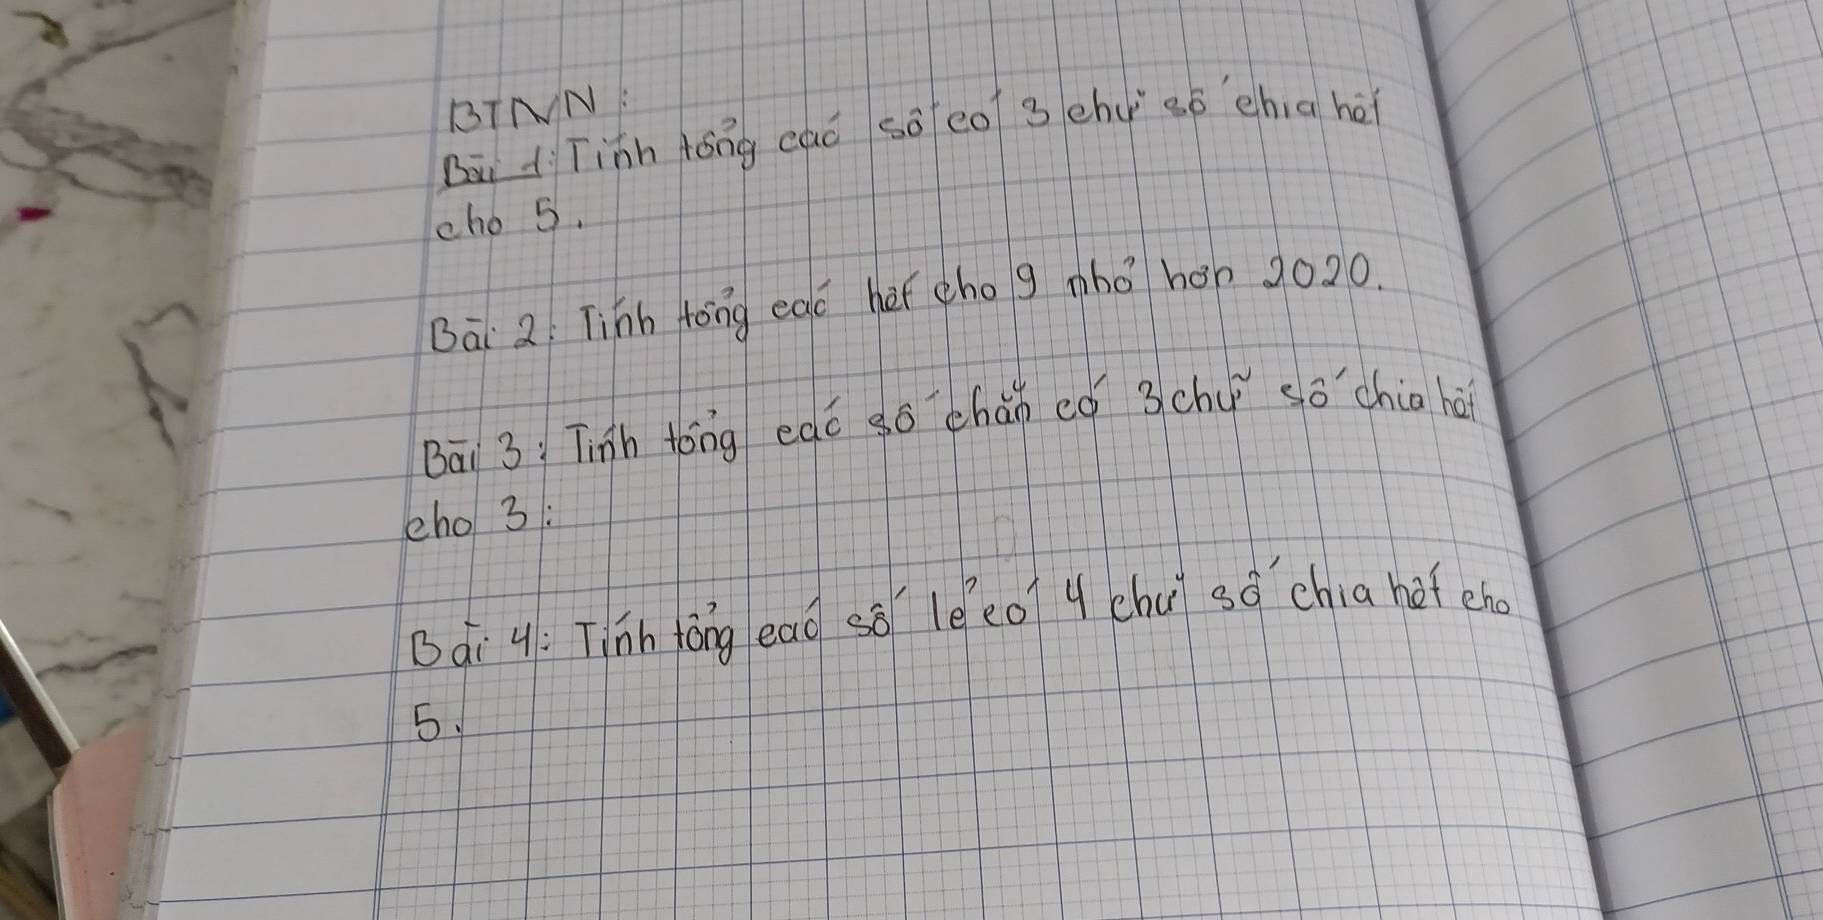 BTVN:
Bài 1: Tính tổng các số có 3 chữ số chia hết
cho 5.
Bài 2: Tính tổng các hết cho 9 nhỏ hơn 2020.
Bài 3: Tính tổng các số chẵn có 3 chữ số chia hết
cho 3:
Bài 4: Tính tổng các số lẻ có 4 chữ số chia hết cho
5.